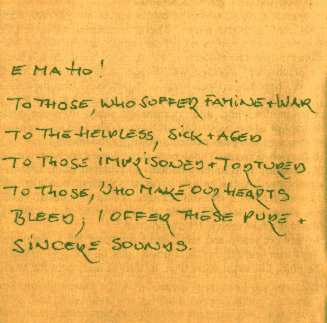 E MA HO!
TO THOSE, WHO SUFFER FAMINE + WAR
TO THE HELPLESS, SICK + AGED
TO THOSE IMPRISONED + TORTURED
TO THOSE, WHO MAKE OUR HEARTS
BLEED; I OFFER THESE PURE +
SINCERE SOUNDS.